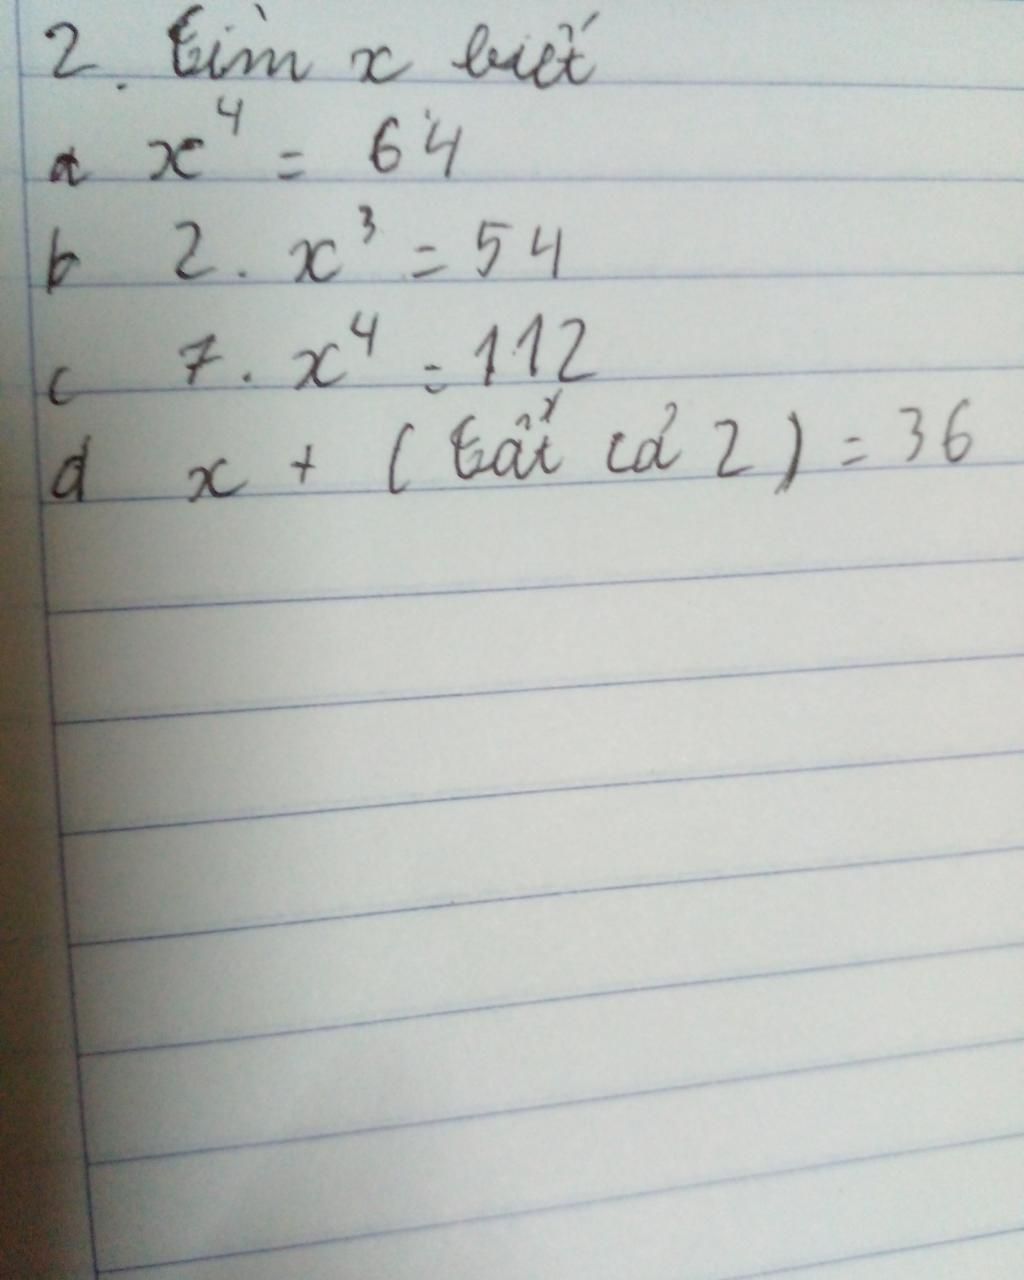 2. tìm x biết
a x⁴ = 64
b 2. x³ = 54
c 7. x⁴ = 112
d x + (tất cả 2) = 36